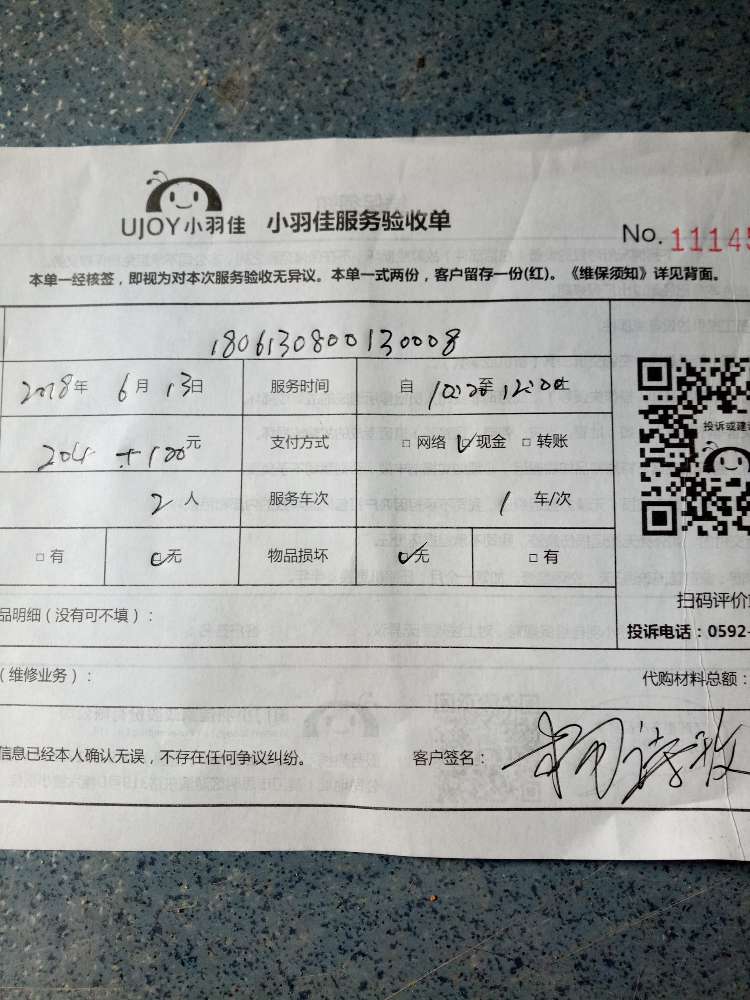 UJOY小羽佳 小羽佳服务验收单
No. 11145
本单一经核签，即视为对本次服务验收无异议。本单一式两份，客户留存一份(红)。《维保须知》详见背面。
1806130800130008
2018年 6月 13日 服务时间 自 10:00至 12:00止
204 + 100元 支付方式 □ 网络 ☑ 现金 □ 转账
投诉或建
2 人 服务车次 1 车/次
□ 有 ☑无 物品损坏 ☑无 □ 有
扫码评价
品明细（没有可不填）：
投诉电话：0592-
（维修业务）： 代购材料总额：
信息已经本人确认无误，不存在任何争议纠纷。 客户签名：